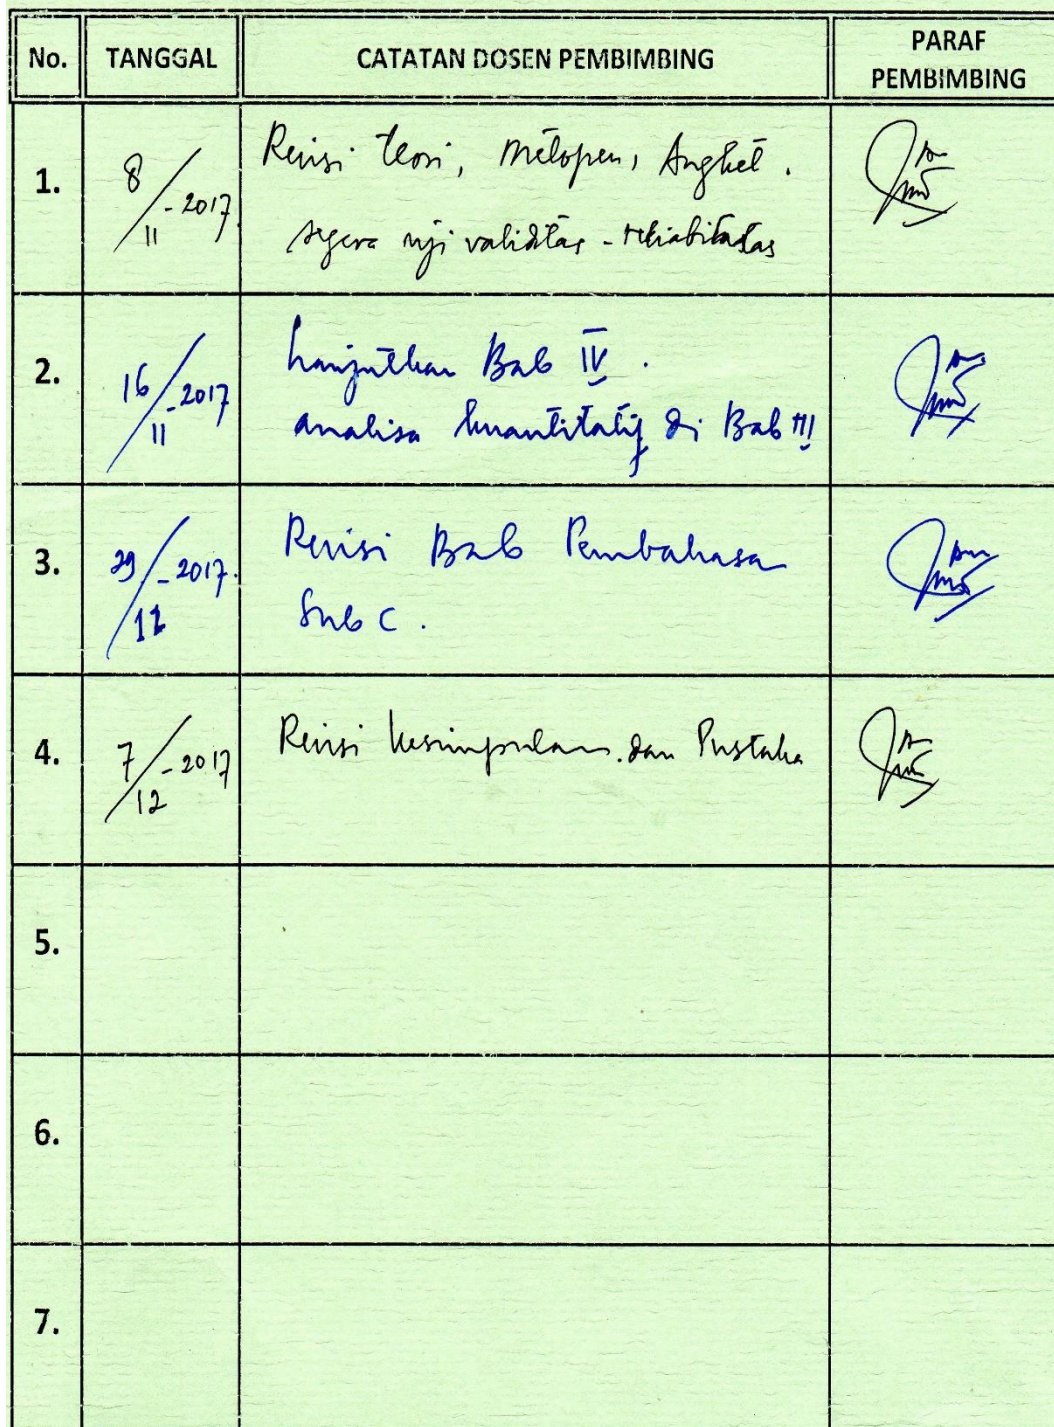 No. TANGGAL CATATAN DOSEN PEMBIMBING PARAF PEMBIMBING
1. 8/11-2017 Revisi teori, Metopen, Angket.
segera uji validitas - reliabilitas
2. 16/11-2017 Lanjutkan Bab IV.
analisa kuantitatif di Bab III
3. 29/11-2017. Revisi Bab Pembahasan
Sub C.
4. 7/12-2017 Revisi kesimpulan dan Pustaka
5.
6.
7.